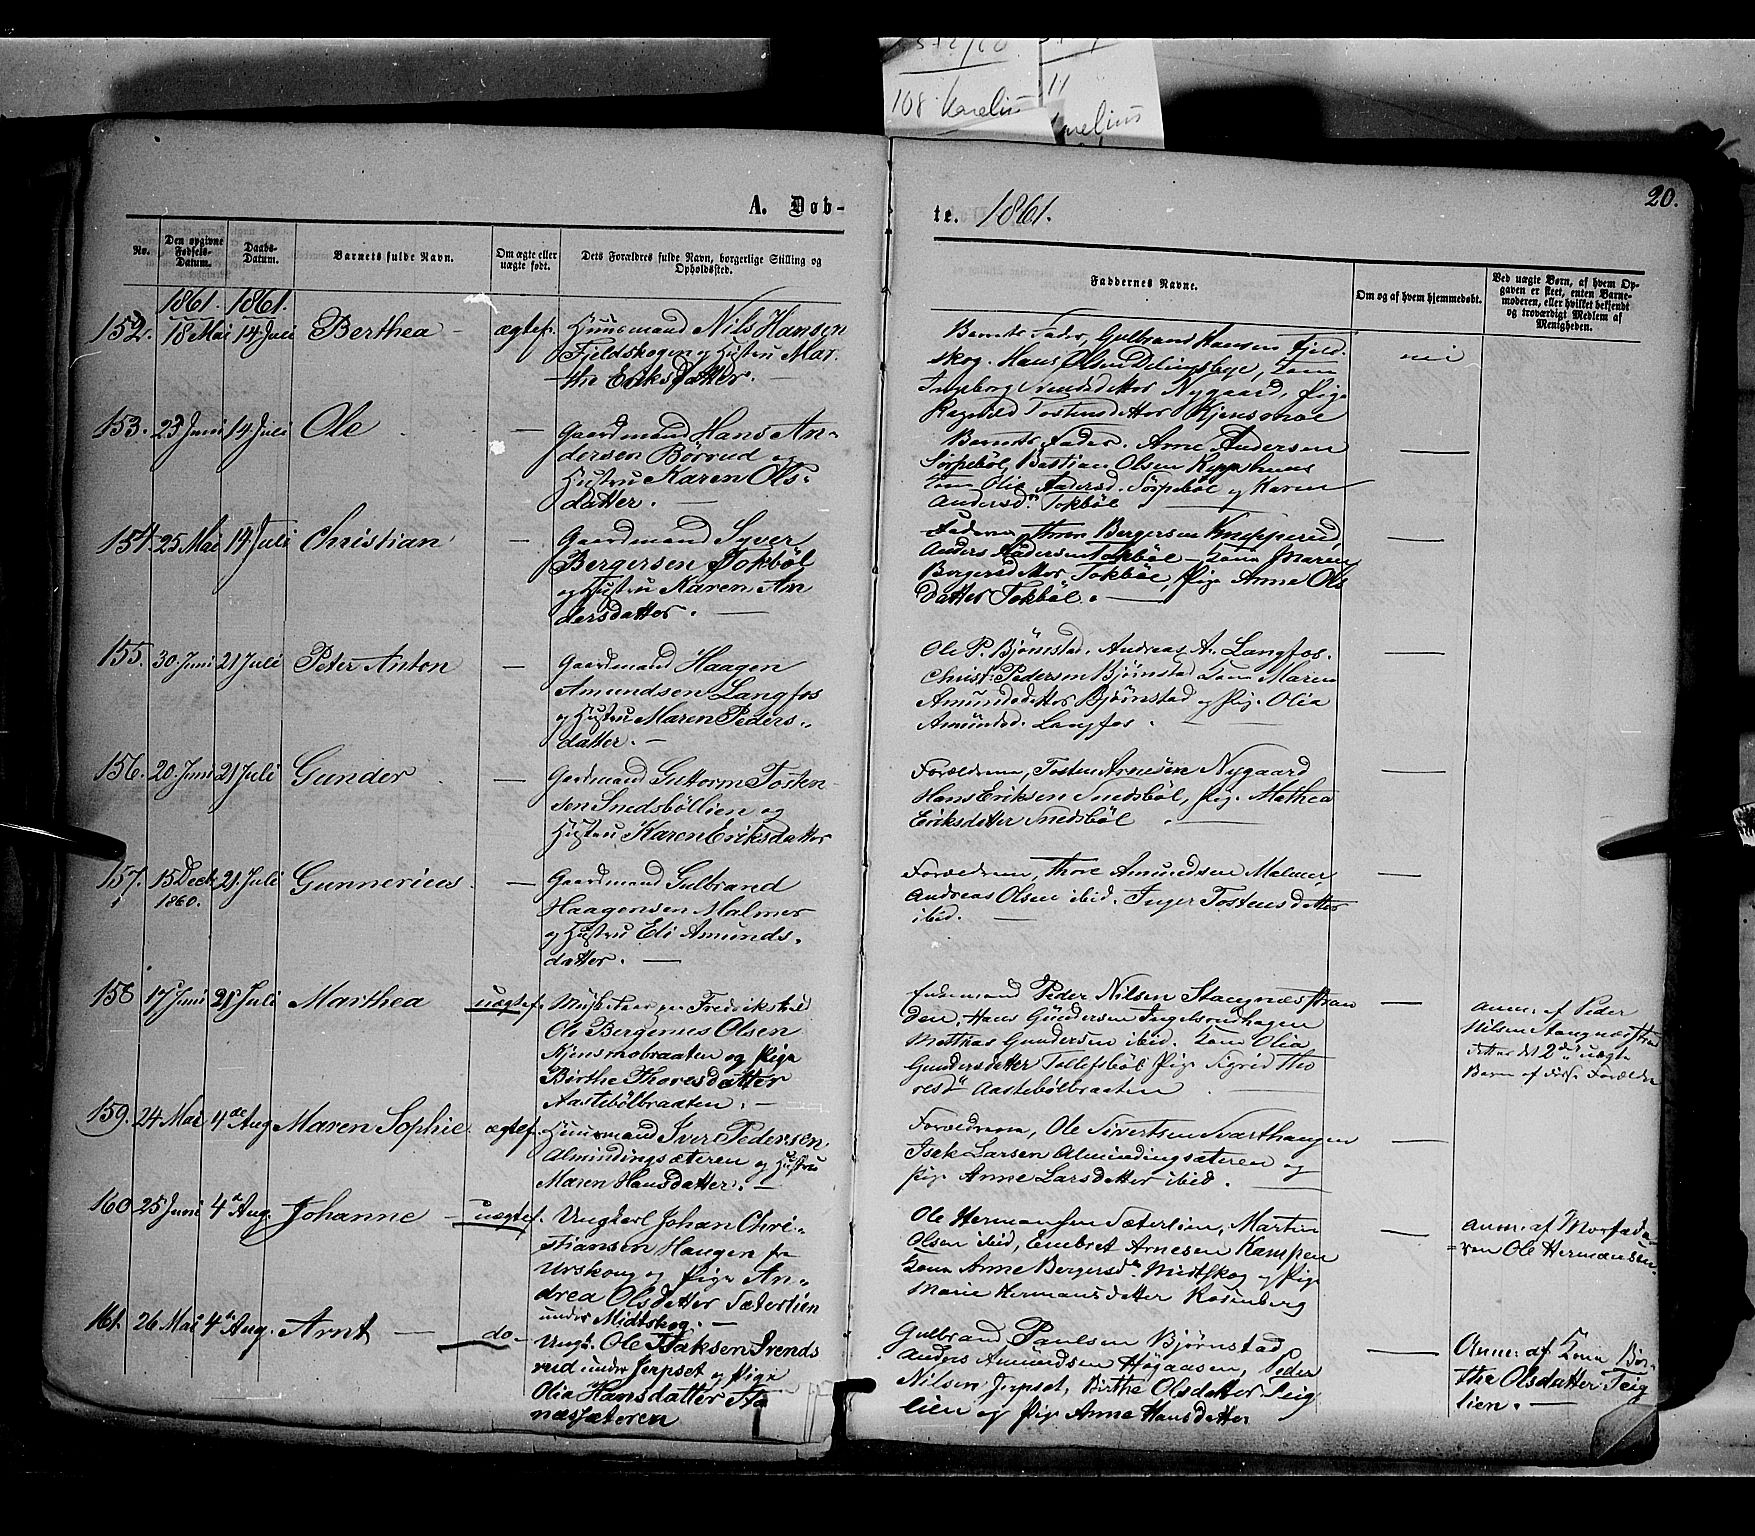 108 Karelius
11
nelius
A. Døb-
te. 1861.
20.
No.
Den opgivne Fødsels-Datum.
Daabs-Datum.
Barnets fulde Navn.
Om ægte eller uægte født.
Dets Forældres fulde Navn, borgerlige Stilling og Opholdssted.
Faddernes Navne.
Om og af hvem hjemmedøbt.
Ved uægte Børn, af hvem Op-
gaven er skeet, enten Barne-
moderen, eller hvilket bekjendt
og troværdigt Medlem af
Menigheden.
1861. 1861.
152. 18 Mai 14 Juli Berthea — ægtef. Huusmand Nils Hansen
Fjeldskogen og Hustru Mar-
the Eriksdatter. —
Barnets Fader, Gulbrand Hansen Fjeld-
skog. Hans Olsen Delingsbye, Kone
Ingeborg Nygaard, Pige
Ragnild Tostensdatter Kjensmoe
nei
153. 23 Juni 14 Juli Ole — Gaardmand Hans An-
dersen Børrud og
Hustru Karen Ols-
datter. —
Barnets Fader. Arne Andersen
Sørpebøl, Bastian Olsen
Kone Olia Andersd. Sørpebøl og Karen
Andersd. Tokbøl —
154. 25 Mai 14 Juli Christian — Gaardmand Syver
Bergersen Tokbøl
og Hustru Karen An
dersdatter. —
Faderen, Thron Bergersen Knipperud,
Anders Andersen Tokbøl — Kone Maren
Bergersdatter Tokbøl, Pige Anne Ols
datter Tokbøl. —
155. 30 Juni 21 Juli Peter Anton — Gaardmand Haagen
Amundsen Langfos
og Hustru Maren Peders-
datter. —
Ole P. Bjørnstad, Andreas A. Langfos.
Christ. Pedersen Bjørnstad Kone Maren
Amundsdatter Bjørnstad og Pige Olia
Amundsd. Langfos. —
156. 20 Juni 21 Juli Gunder — Gaardmand Guttorm Tosten
sen Smedsbøllien og
Hustru Karen Eriksdatter
Forældrene, Tosten Arnesen Nygaard
Hans Eriksen Smedsbøl, Pige Mathea
Eriksdatter Smedsbøl. —
157. 15 Decb 1860. 21 Juli Gunnerius — Gaardmand Gulbrand
Haagensen Malmer
og Hustru Eli Amunds-
datter. —
Forældrene, Thore Amundsen Malmer,
Andreas Olsen ibid. Inger Tostensdatter
ibid. —
158 17 Juni 21 Juli Marthea — uægtef. Fredrikstad
Ole Bergenus Olsen
Kjensmobraaten og Pige
Birthe Thoresdatter
Aastebølbraaten. —
Enkemand Peder Nilsen Stangnæsstran
den, Hans Gundersen Ingelsrudhagen
Mathias Gundersen ibid. Kone Olia
Gundersdatter Tollefsbøl Pige Sigrid Tho
resdr Aastebølbraaten —
Anm. af Peder
Nilsen Stangnæsstran
Dette det 2det uægte
Barn af Forældre
159. 24 Mai 4de Aug Maren Sophie. ægtef. Huusmand Iver Pedersen
Almindingsæteren og Hustru
Maren Hansdatter. —
Forældrene, Ole Sivertsen Svarthaugen
Isak Larsen Almindingsæteren og
Pige Anne Larsdatter ibid. —
160 25 Juni 4 Aug. Johanne — uægtef. Ungkarl Johan Chri-
stiansen Haugen fra
Urskoug og Pige An-
drea Olsdatter Sæterlien
under Midtskog. —
Ole Hermansen Sæterlien, Martin
Olsen ibid, Embret Arnesen Kampen
Kone Anne Bergersdr Midtskog og Pige
Marie Hermansdatter Rosenberg
Anm. af Morfade-
ren Ole Hermansen.
161. 26 Mai 4 Aug. Arnt — do — Ungk. Ole Isaksen Svends
rud under Jerpset og Pige
Olia Hansdatter Aa
næssæteren
Gulbrand Paulsen Bjørnstad
Anders Amundsen Høgaasen, Peder
Nilsen Jerpset, Birthe Olsdatter Teig
lien og Pige Anne Hansdatter
Anm. af Kone Bir-
the Olsdatter Teig
lien. —